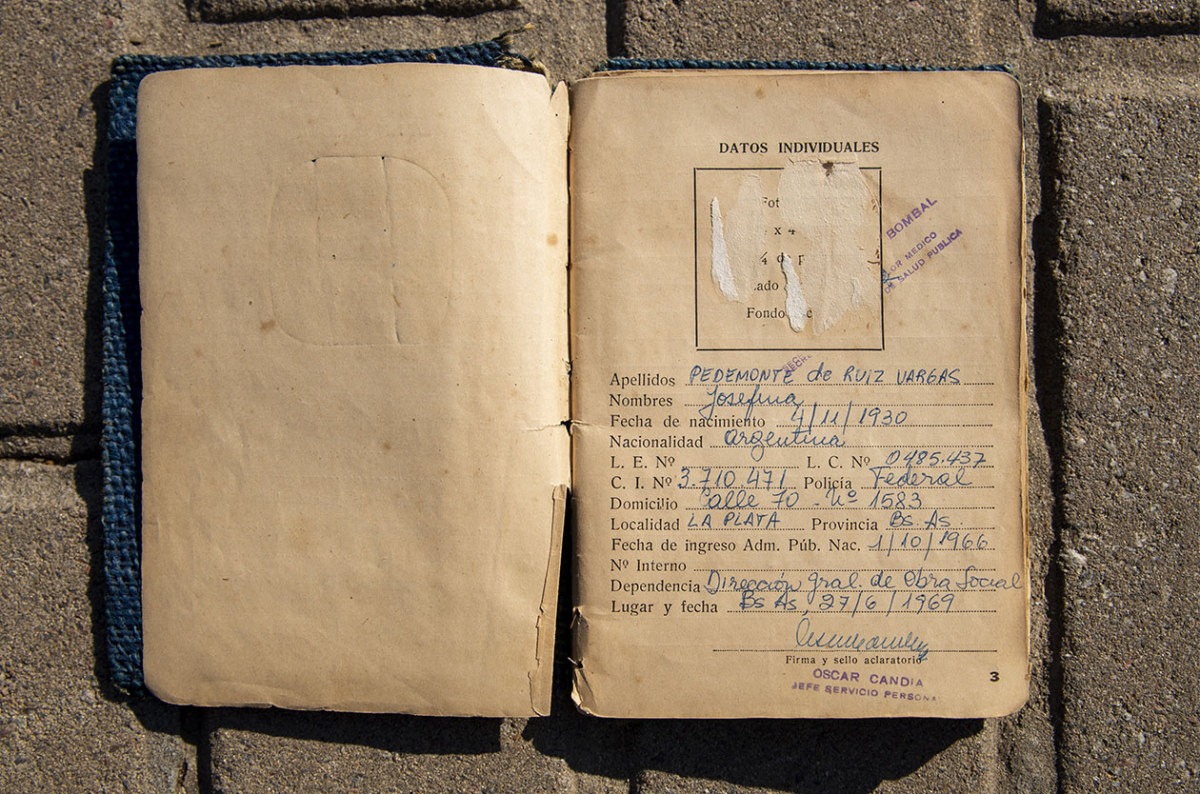 DATOS INDIVIDUALES
Fot
x 4
¼ de p
ado
Fondo
BOMBAL
OR MEDICO
DE SALUD PUBLICA
Apellidos PEDEMONTE de RUIZ VARGAS
Nombres Josefina
Fecha de nacimiento 4/11/1930
Nacionalidad argentina
L. E. Nº L. C. Nº 0485.437
C. I. Nº 3.710.471 Policía Federal
Domicilio Calle 70 - Nº 1583
Localidad LA PLATA Provincia Bs. As.
Fecha de ingreso Adm. Púb. Nac. 1/10/1966
Nº Interno
Dependencia Dirección Gral. de Obra Social
Lugar y fecha Bs As, 27/6/1969
Firma y sello aclaratorio
OSCAR CANDIA
JEFE SERVICIO PERSONA
3